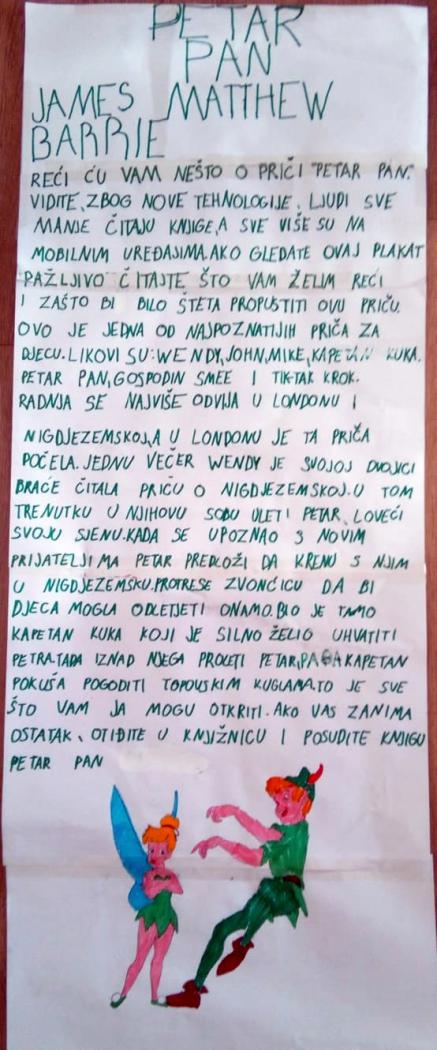 PETAR
PAN
JAMES MATTHEW
BARRIE
REĆI ĆU VAM NEŠTO O PRIČI "PETAR PAN."
VIDITE, ZBOG NOVE TEHNOLOGIJE, LJUDI SVE
MANJE ČITAJU KNJIGE, A SVE VIŠE SU NA
MOBILNIM UREĐAJIMA. AKO GLEDATE OVAJ PLAKAT
PAŽLJIVO ČITAJTE ŠTO VAM ŽELIM REĆI
I ZAŠTO BI BILO ŠTETA PROPUSTITI OVU PRIČU.
OVO JE JEDNA OD NAJPOZNATIJIH PRIČA ZA
DJECU. LIKOVI SU: WENDY, JOHN, MIKE, KAPETAN KUKA.
PETAR PAN, GOSPODIN SMEE I TIK-TAK KROK.
RADNJA SE NAJVIŠE ODVIJA U LONDONU I
NIGDJEZEMSKOJ, A U LONDONU JE TA PRIČA
POČELA. JEDNU VEČER WENDY JE SVOJOJ DVOJICI
BRAĆE ČITALA PRIČU O NIGDJEZEMSKOJ. U TOM
TRENUTKU U NJIHOVU SOBU ULETI PETAR, LOVEĆI
SVOJU SJENU. KADA SE UPOZNAO S NOVIM
PRIJATELJIMA PETAR PREDLOŽI DA KRENU S NJIM
U NIGDJEZEMSKU. PROTRESE ZVONČICU DA BI
DJECA MOGLA ODLETJETI ONAMO. BIO JE TAMO
KAPETAN KUKA KOJI JE SILNO ŽELIO UHVATITI
PETRA. TADA IZNAD NJEGA PROLETI PETAR, PA GA KAPETAN
POKUŠA POGODITI TOPOVSKIM KUGLAMA. TO JE SVE
ŠTO VAM JA MOGU OTKRITI. AKO VAS ZANIMA
OSTATAK, OTIĐITE U KNJIŽNICU I POSUDITE KNJIGU
PETAR PAN